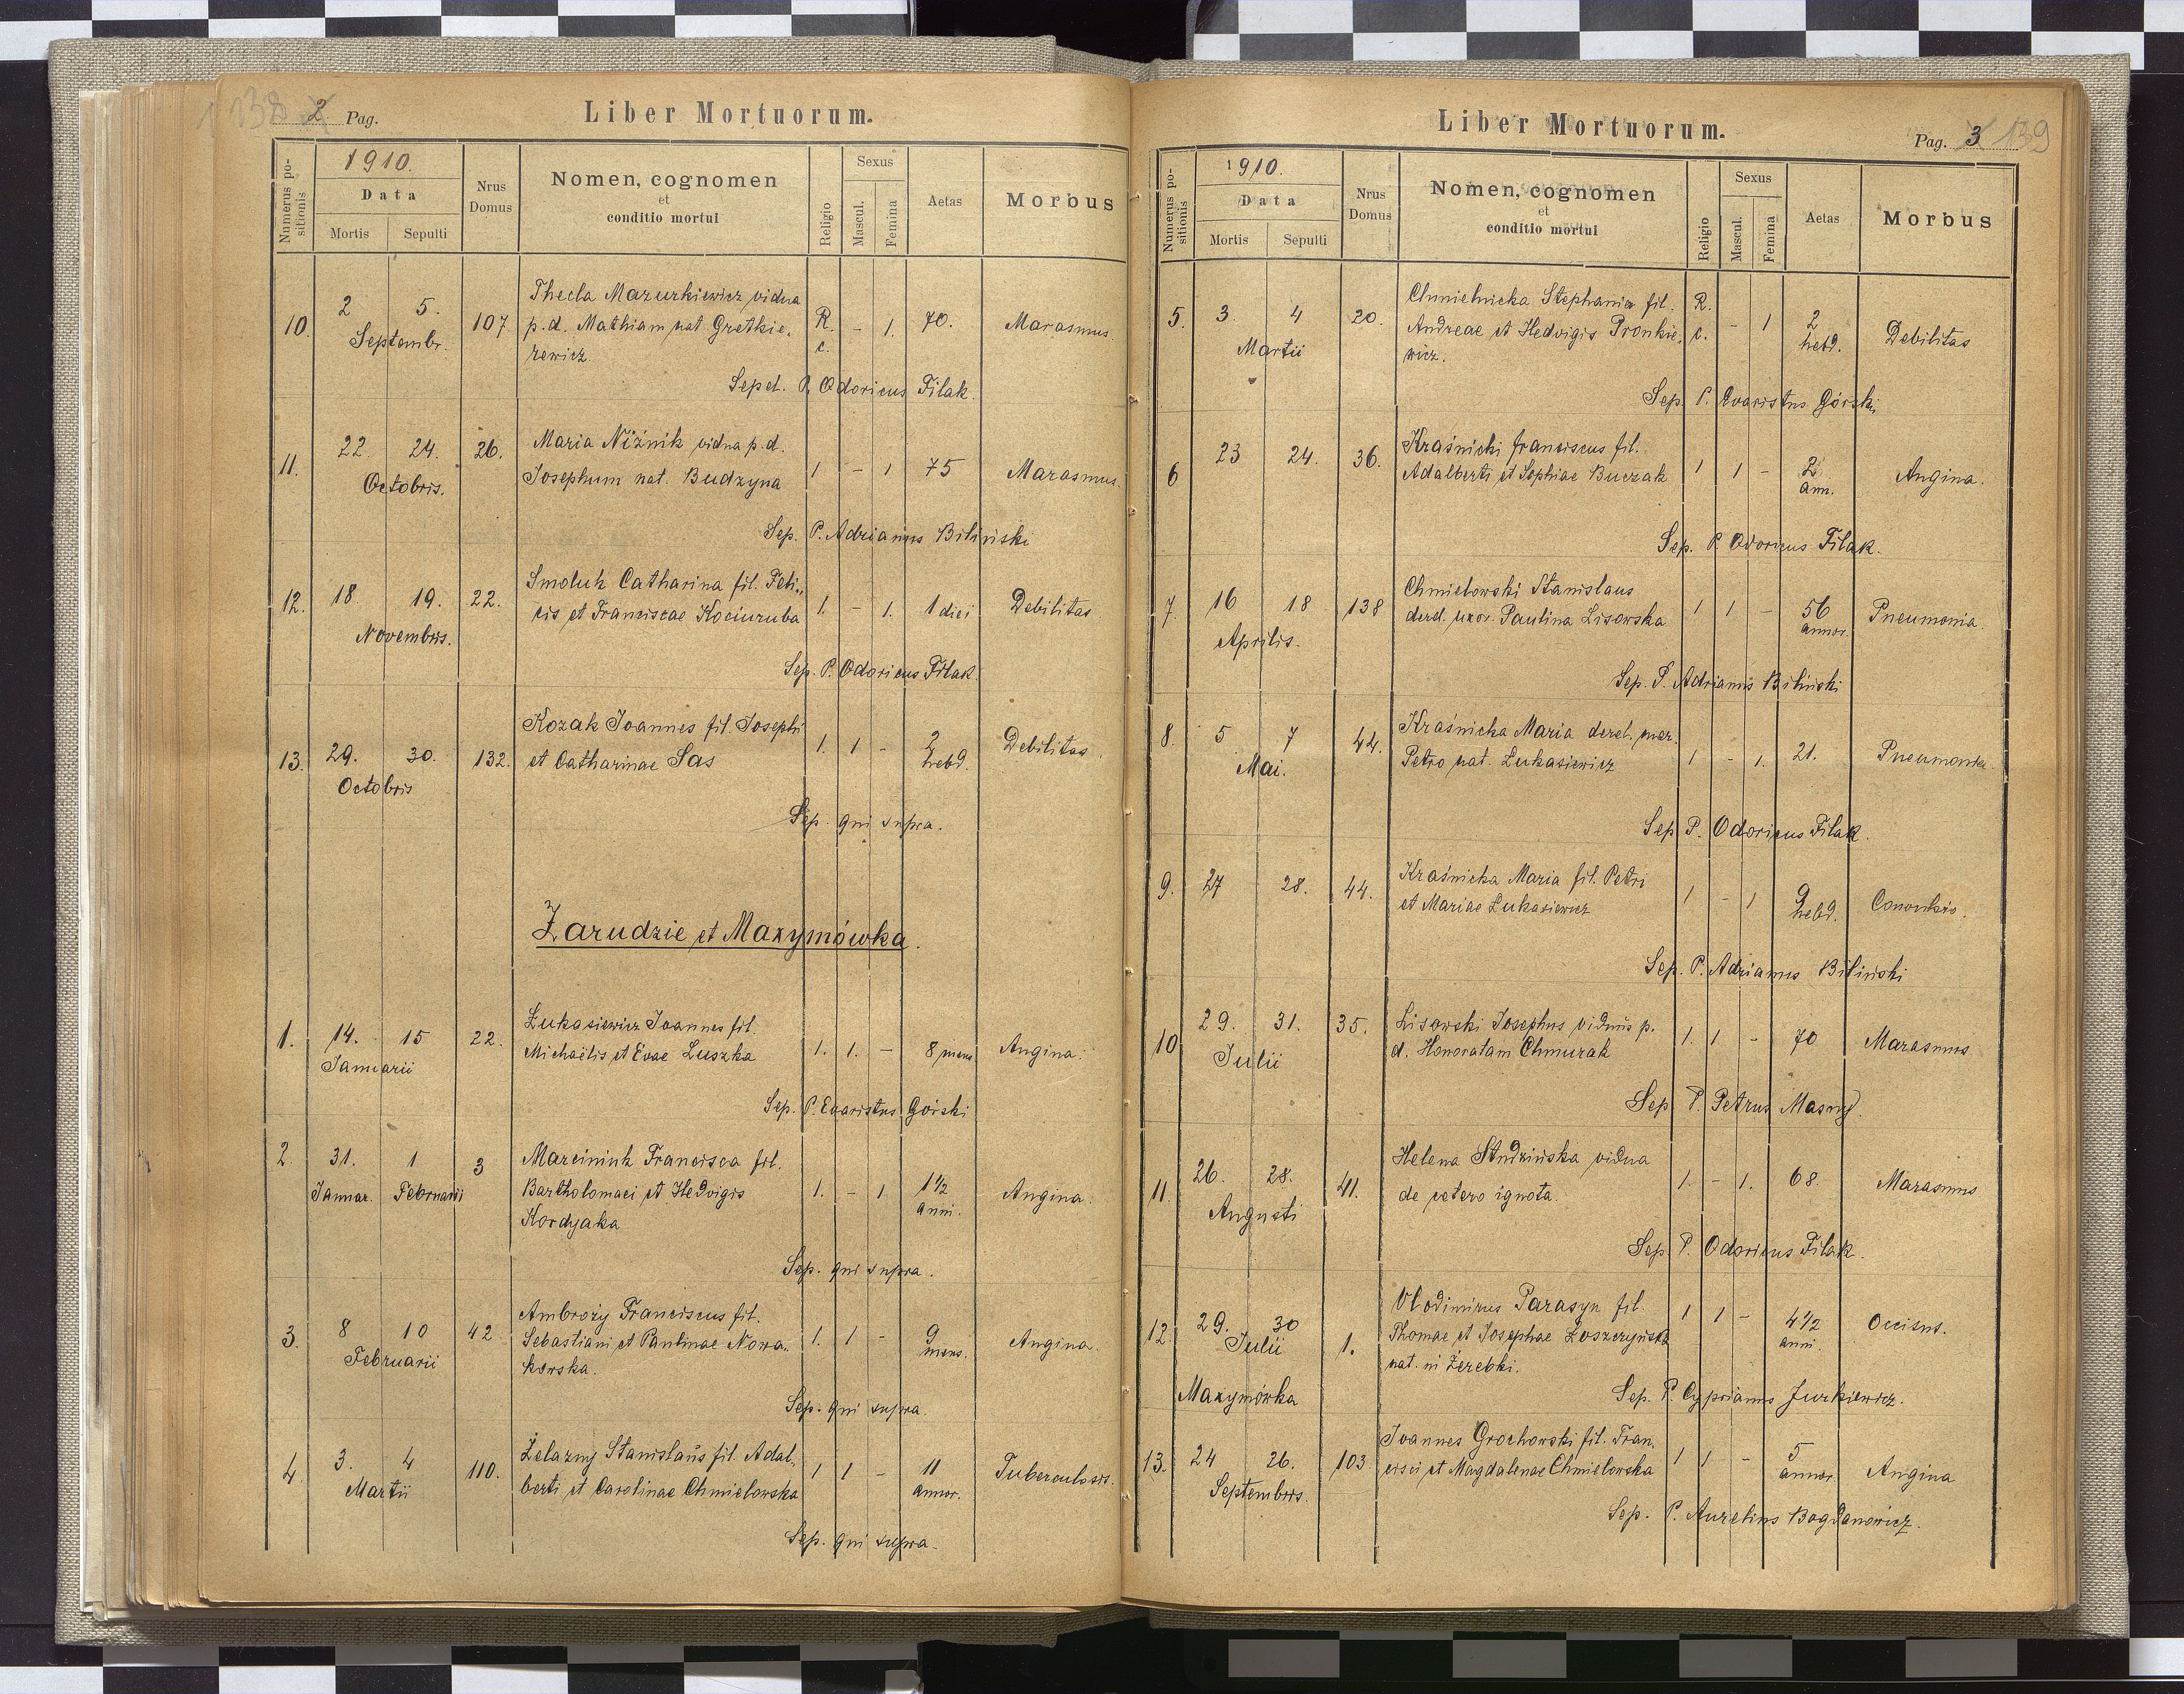 2 Pag.
138
Liber Mortuorum.
Numerus positionis
1910.
Data
Mortis Sepulti
Nrus Domus
Nomen, cognomen
et
conditio mortui
Religio
Sexus
Mascul. Femina
Aetas
Morbus
10. 2 5. Septembr. 107
Thecla Mazurkiewicz vidua
p.d. Mathiam nat Gretkie-
rewicz
R. c. - 1. 70. Marasmus.
Sepel. P. Odoricus Filak.
11. 22. 24. Octobris. 26.
Maria Niżnik vidua p.d.
Josephum nat. Budzyna
1 - 1 75 Marasmus.
Sep. P. Adrianus Biliński
12. 18. 19. Novembris. 22.
Smoluk Catharina fil. Feli-
cis et Franciscae Kociuruba
1. - 1. 1 diei Debilitas
Sep. P. Odoricus Filak.
13. 29. 30. Octobris 132.
Kozak Joannes fil. Josephi
et Catharinae Sas
1. 1 - 2 hebd. Debilitas.
Sep. qui supra.
Zarudzie et Maxymówka.
1. 14. 15 Januarii 22.
Łukasiewicz Joannes fil.
Michaëlis et Evae Luszka
1. 1. - 8 mens Angina.
Sep. P. Evaristus Górski
2. 31. Januar. 1 Februarii 3
Marciniuk Francisca fil.
Bartholomaei et Hedvigis
Kordyaka
1. - 1 1 1/2 anni. Angina.
Sep. qui supra.
3. 8 10 Februarii 42
Ambroży Franciscus fil.
Sebastiani et Paulinae Nowa-
kowska.
1. 1 - 9 mens. Angina.
Sep. qui supra.
4. 3. 4 Martii 110.
Żelazny Stanislaus fil. Adal-
berti et Carolinae Chmielowska
1 1 - 11 annor. Tuberculosis.
Sep. qui supra.
Liber Mortuorum.
Pag. 3 139
Numerus positionis
1910.
Data
Mortis Sepulti
Nrus Domus
Nomen, cognomen
et
conditio mortui
Religio
Sexus
Mascul. Femina
Aetas
Morbus
5. 3. 4 Martii 20.
Chmielnicka Stephania fil.
Andreae et Hedvigis Pronkie-
wicz.
R. c. - 1 2 hebd. Debilitas
Sep. P. Evaristus Górski
6 23 24. 36.
Kraśnicki Franciscus fil.
Adalberti et Sophiae Buczak
1 1 - 2 ann. Angina.
Sep. P. Odoricus Filak.
7. 16 18 Aprilis. 138
Chmielowski Stanislaus
derel. uxor. Paulina Lisowska
1 1 - 56 annor. Pneumonia.
Sep. P. Adrianus Biliński
8. 5 7 Mai. 44.
Kraśnicka Maria derel. mar.
Petro nat. Łukasiewicz
1 - 1. 21. Pneumonia.
Sep. P. Odoricus Filak.
9. 27 28. 44.
Kraśnicka Maria fil. Petri
et Mariae Łukasiewicz
1 - 1 9 hebd.
Sep. P. Adrianus Biliński
10 29. 31. Julii 35.
Lisowski Josephus viduus p.
d. Honoratam Chmurak
1. 1 - 70 Marasmus
Sep P. Petrus Masny.
11. 26. 28. Augusti 41.
Helena Studzińska vidua
de cetero ignota.
1. - 1. 68. Marasmus
Sep P. Odoricus Filak.
12 29. 30 Julii 1.
Maxymówka
Vlodimirus Parasyn fil.
Thomae et Josephae Łoszczyńska
nat. in Żerebki.
1 1 - 4 1/2 anni. Occisus.
Sep. P. Cyprianus Jurkiewicz.
13. 24 26. Septembris. 103
Joannes Grochowski fil. Fran-
cisci et Magdalenae Chmielowska
1 1 - 5 annor. Angina
Sep. P. Aurelius Bogdanowicz.